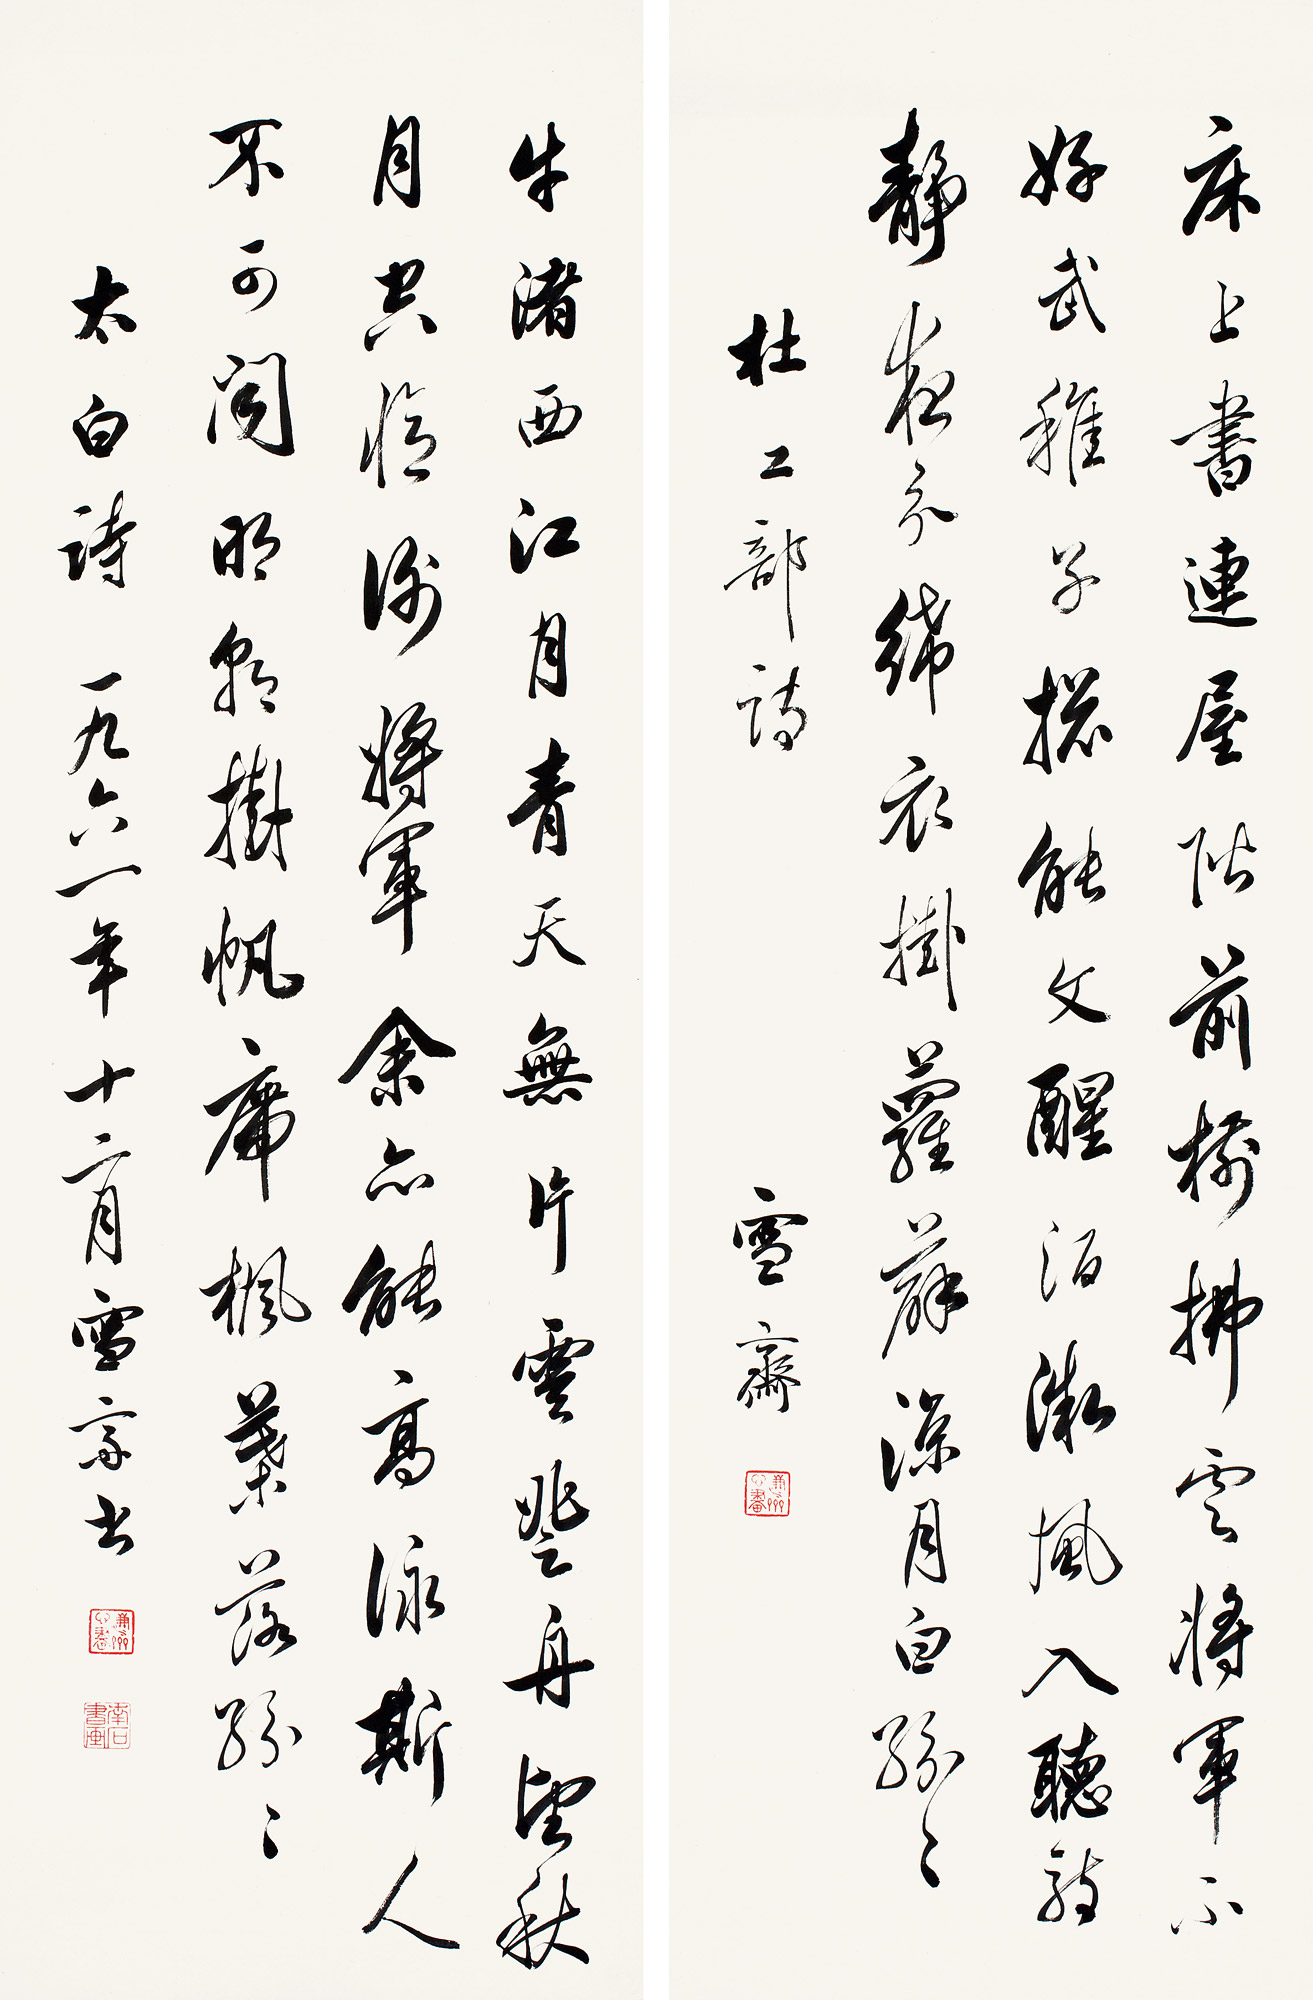 床上書連屋階前樹拂雲將軍不
好武稚子摠能文醒酒微風入聽詩
靜夜分絺衣掛蘿薜涼月白紛〻
杜工部詩 雪齋
牛渚西江月青天無片雲登舟望秋
月空憶謝將軍余亦能高詠斯人
不可聞明朝掛帆席楓葉落紛〻
太白詩 一九六一年十二月雪齋书
南石書画